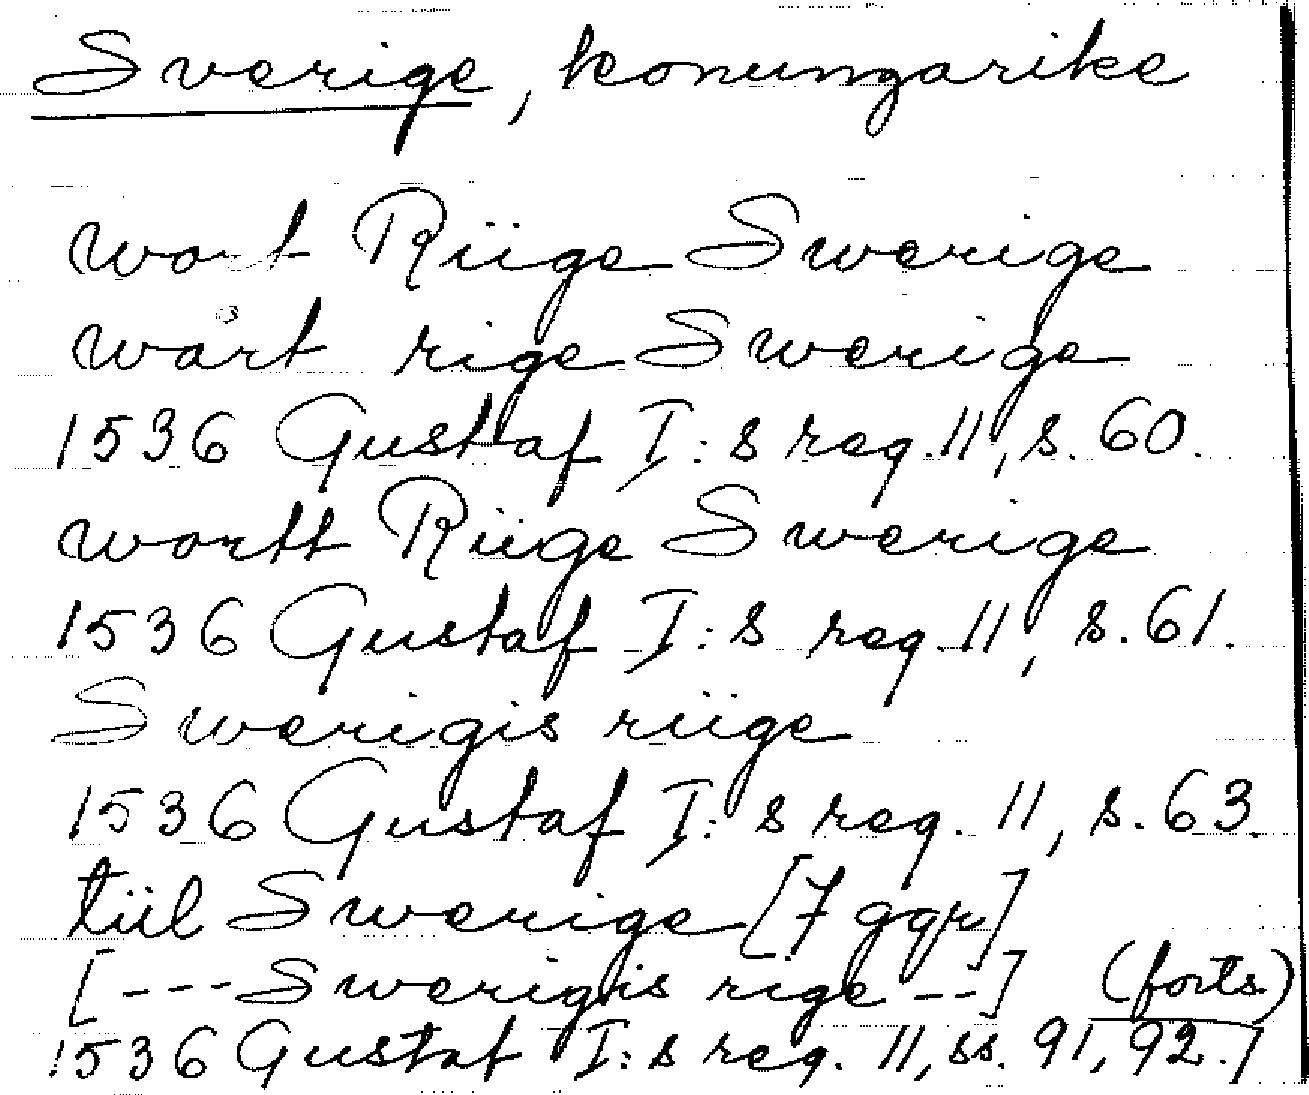 Sverige, konungarike
wort Riige Swerige
wårt rige Swerige
1536 Gustaf I:s reg. 11, s. 60.
wortt Riige Swerige
1536 Gustaf I:s reg. 11, s. 61.
Swerigis riige
1536 Gustaf I:s reg. 11, s. 63.
tiil Swerige [7 ggr]
[---Swerigis rige --] (forts)
1536 Gustaf I:s reg. 11, ss. 91, 92. /